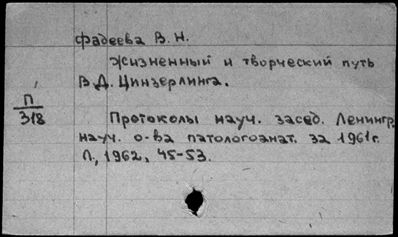 Фадеева В. Н.
Жизненный и творческий путь
В.Д. Цинзерлинга.
П
318
Протоколы науч. засед. Ленингр.
науч. о-ва патологоанат. за 1961г.
Л., 1962, 45-53.